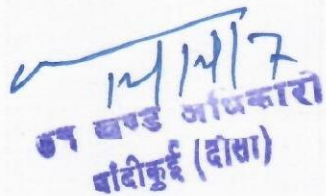 14/4/17
उप खण्ड अधिकारी
बांदीकुई (दौसा)